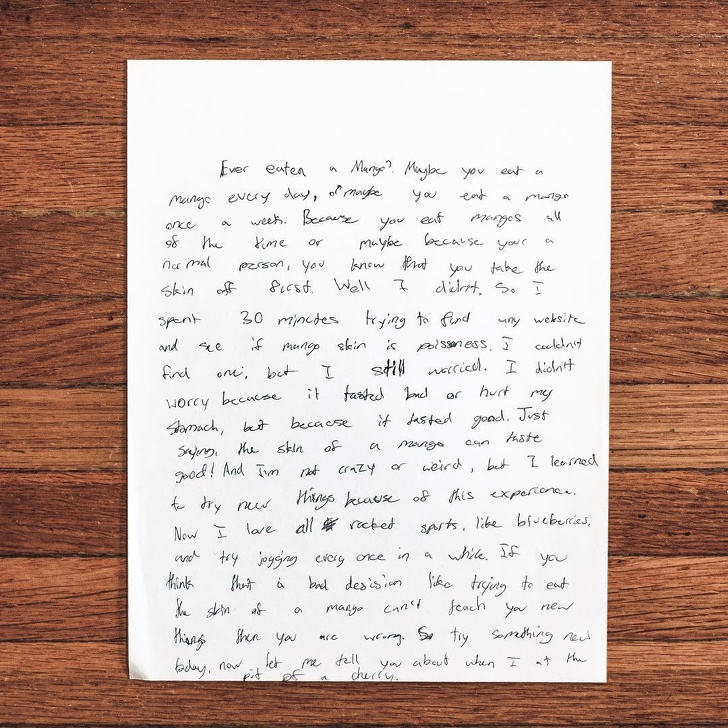 Ever eaten a Mango? Maybe you eat a
mango every day, or maybe you eat a mango
once a week. Because you eat mangos all
of the time or maybe because your a
normal person, you know that you take the
skin off first. Well I didn't. So I
spent 30 minutes trying to find any website
and see if mango skin is poisoness. I couldn't
find one, but I still worried. I didn't
worry because it tasted bad or hurt my
stomach, but because it tasted good. Just
saying, the skin of a mango can taste
good! And I'm not crazy or weird, but I learned
to try new things because of this experience.
Now I love all racket sports, like blueberries,
and try jogging every once in a while. If you
think that a bad desision like trying to eat
the skin of a mango can't teach you new
things then you are wrong. So try something new
today, now let me tell you about when I at the
pit of a cherry.